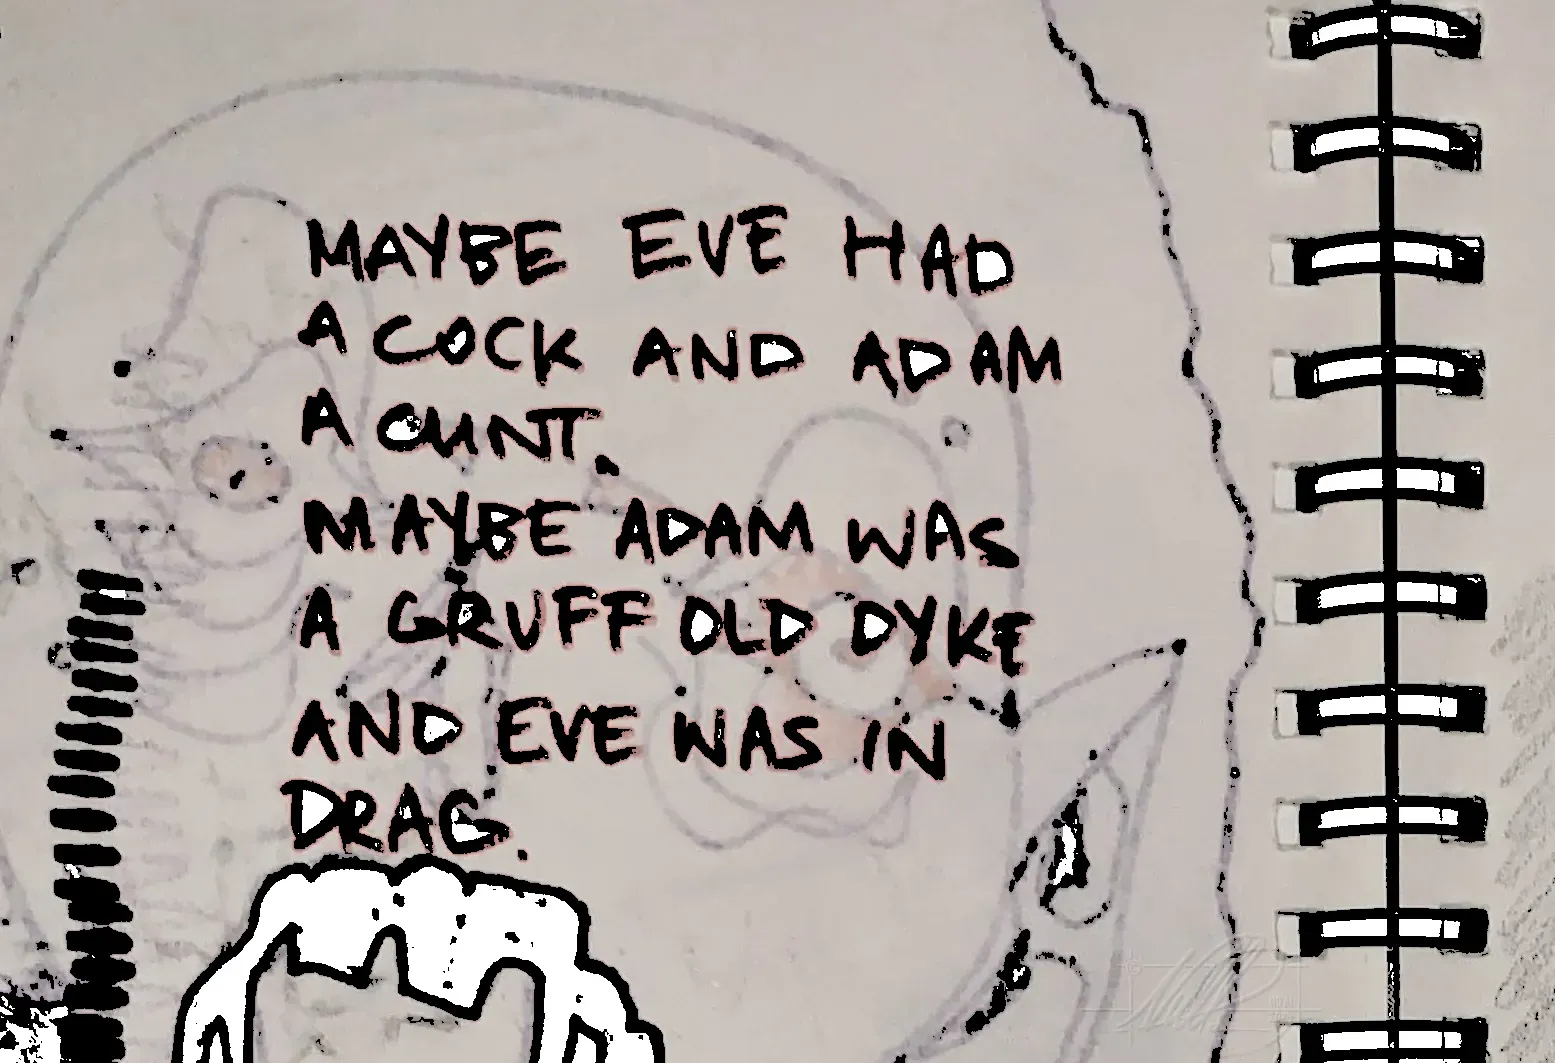 MAYBE EVE HAD
A COCK AND ADAM
A CUNT.
MAYBE ADAM WAS
A GRUFF OLD DYKE
AND EVE WAS IN
DRAG.